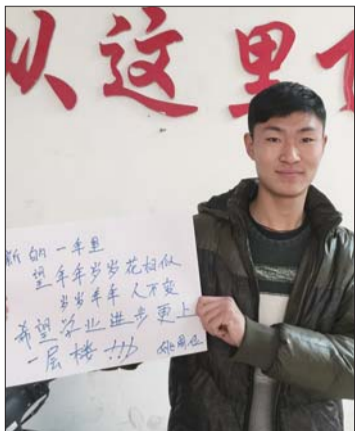 从这里
新的一年里
望年年岁岁花相似
岁岁年年人不变
希望学业进步更上
一层楼!!!